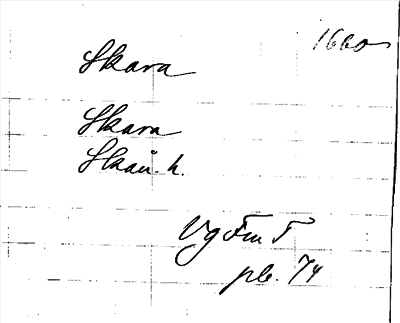 1660
Skara
Skara
Skån. h.
Vg Fm T
pl. 74